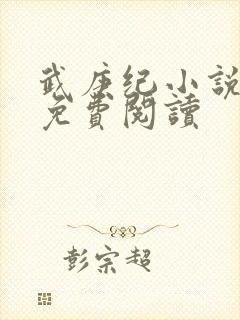 武庚纪小说
免費閱讀
彭宗超